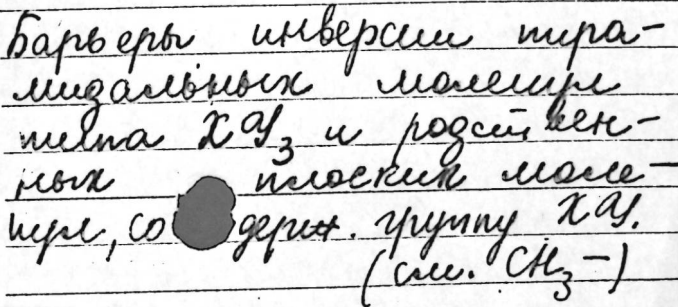 Барьеры инверсии пира-
мидальных молекул
типа XY₃ и родствен-
ных плоских моле-
кул, содерж. группу XY.
(см. CH₃–)